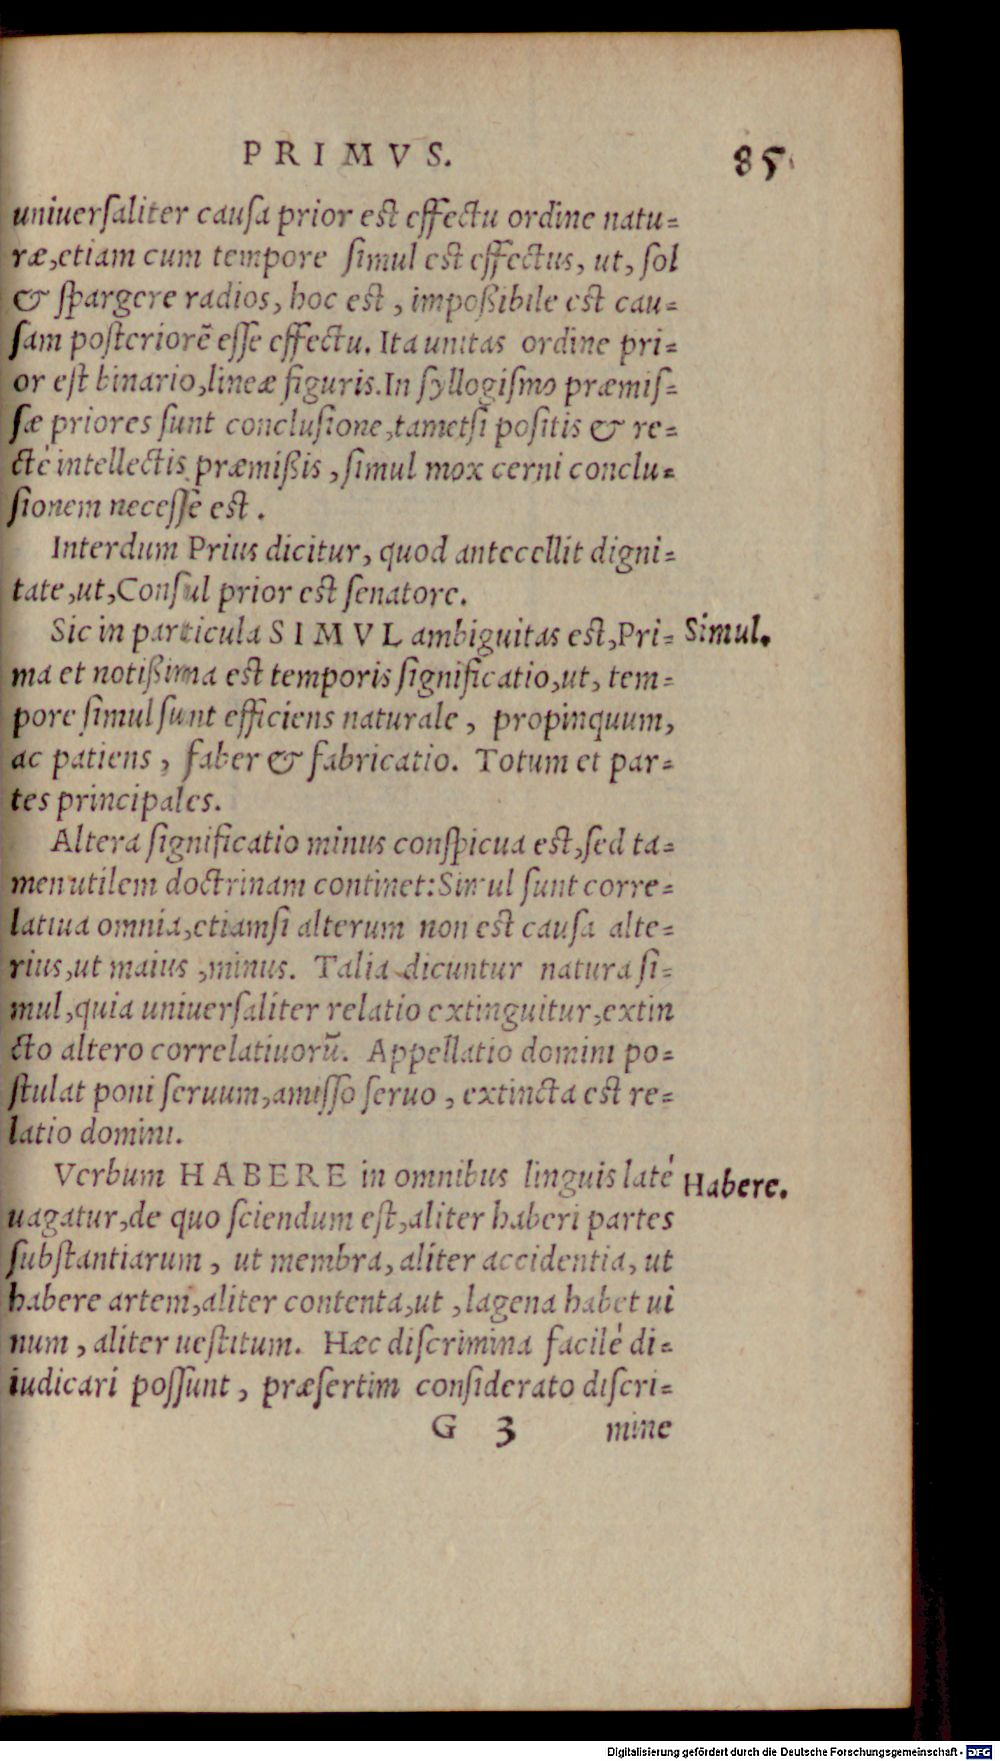 PRIMVS. 85
uniuerſaliter cauſa prior est effectu ordine natu=
ræ, etiam cum tempore ſimul est effectus, ut, ſol
& ſpargere radios, hoc est, impoßibile est cau=
ſam posteriorẽ eſſe effectu. Ita unitas ordine pri=
or eſt binario, lineæ figuris. In ſyllogiſmo præmiſ=
ſæ priores ſunt concluſione, tametſi poſitis & re=
ctè intellectis præmißis, ſimul mox cerni conclu=
ſionem neceſſe est.
Interdum Prius dicitur, quod antecellit digni=
tate, ut, Conſul prior est ſenatore.
Sic in particula SIMVL ambiguitas est, Pri= Simul.
ma et notißima est temporis ſignificatio, ut, tem=
pore ſimul ſunt efficiens naturale, propinquum,
ac patiens, faber & fabricatio. Totum et par=
tes principales.
Altera ſignificatio minus conſpicua est, ſed ta=
men utilem doctrinam continet: Simul ſunt corre=
latiua omnia, etiamſi alterum non est cauſa alte=
rius, ut maius, minus. Talia dicuntur natura ſi=
mul, quia uniuerſaliter relatio extinguitur, extin
cto altero correlatiuorũ. Appellatio domini po=
ſtulat poni ſeruum, amiſſo ſeruo, extincta est re=
latio domini.
Verbum HABERE in omnibus linguis latè Habere.
uagatur, de quo ſciendum eſt, aliter haberi partes
ſubſtantiarum, ut membra, aliter accidentia, ut
habere artem, aliter contenta, ut, lagena habet ui
num, aliter ueſtitum. Hæc diſcrimina facilè di=
iudicari poſſunt, præſertim conſiderato diſcri=
G 3 mine
Digitalisierung gefördert durch die Deutsche Forschungsgemeinschaft - DFG